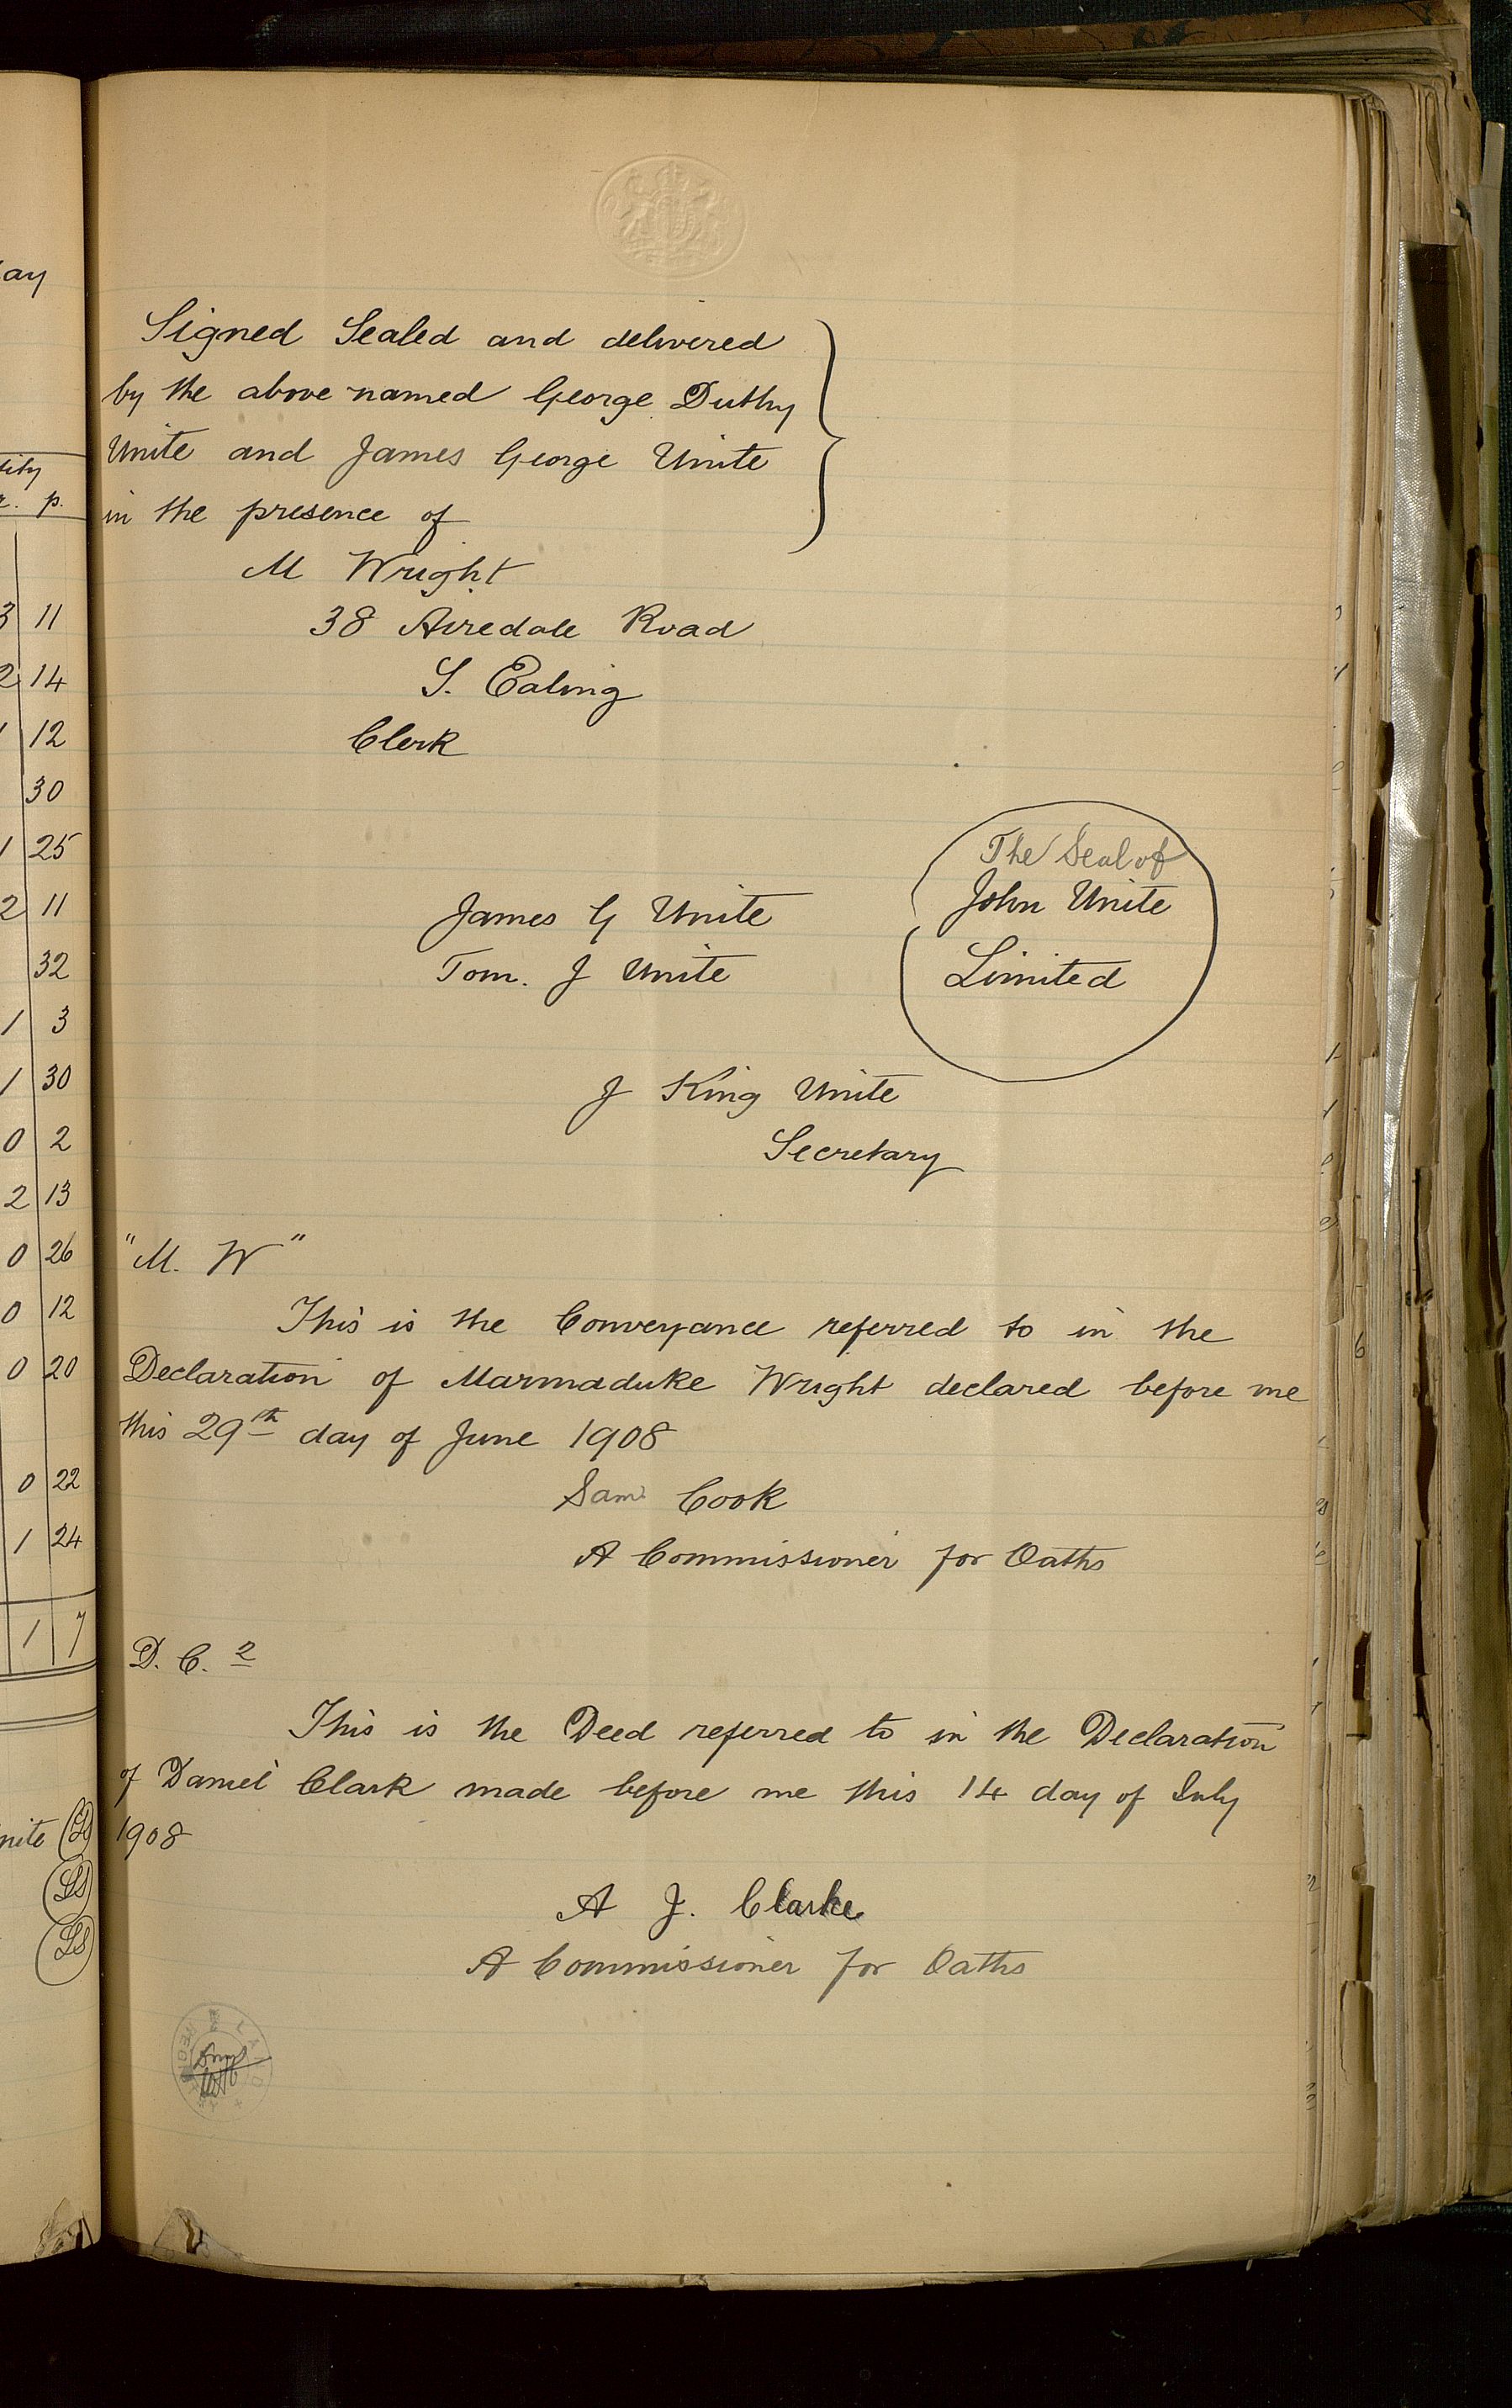 ay
tity
r. p.
3 11
2 14
1 12
30
1 25
2 11
32
1 3
1 30
0 2
2 13
0 26
0 12
0 20
0 22
1 24
1 7
nite LS
LS
LS
Signed Sealed and delivered
by the above named George Duthy
Unite and James George Unite
in the presence of
M Wright
38 Airedale Road
S. Ealing
Clerk
The Seal of
John Unite
Limited
James G Unite
Tom. J Unite
J King Unite
Secretary
"M. W"
This is the Conveyance referred to in the
Declaration of Marmaduke Wright declared before me
this 29th day of June 1908
Saml Cook
A Commissioner for Oaths
D. C. 2
This is the Deed referred to in the Declaration
of Daniel Clark made before me this 14 day of July
1908
A J. Clarke
A Commissioner for Oaths
LAND REGISTRY